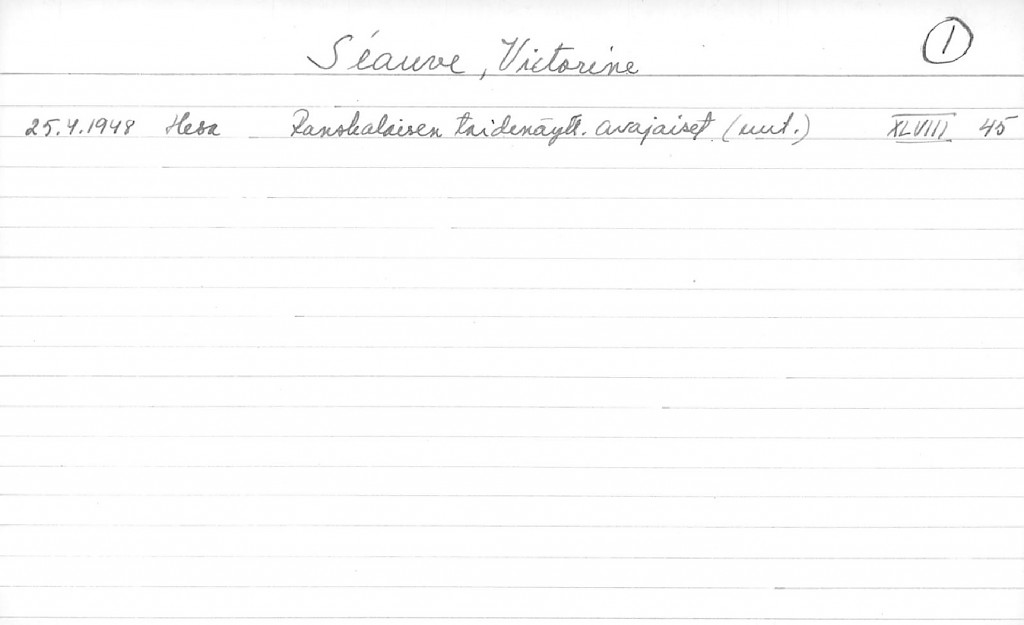 Séauve, Victorine
1
25.4.1948 Hesa Ranskalaisen taidenäytt. avajaiset (uut.) XLVIII 45